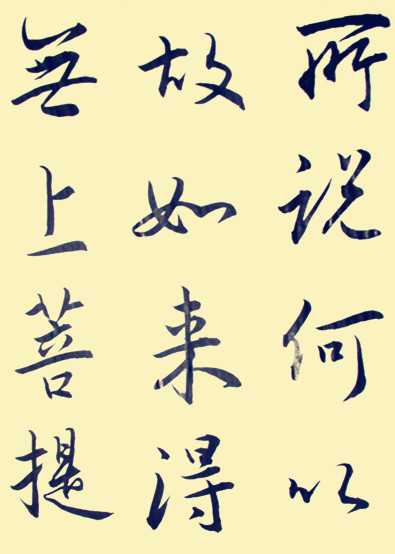 所说何以
故如来得
無上菩提